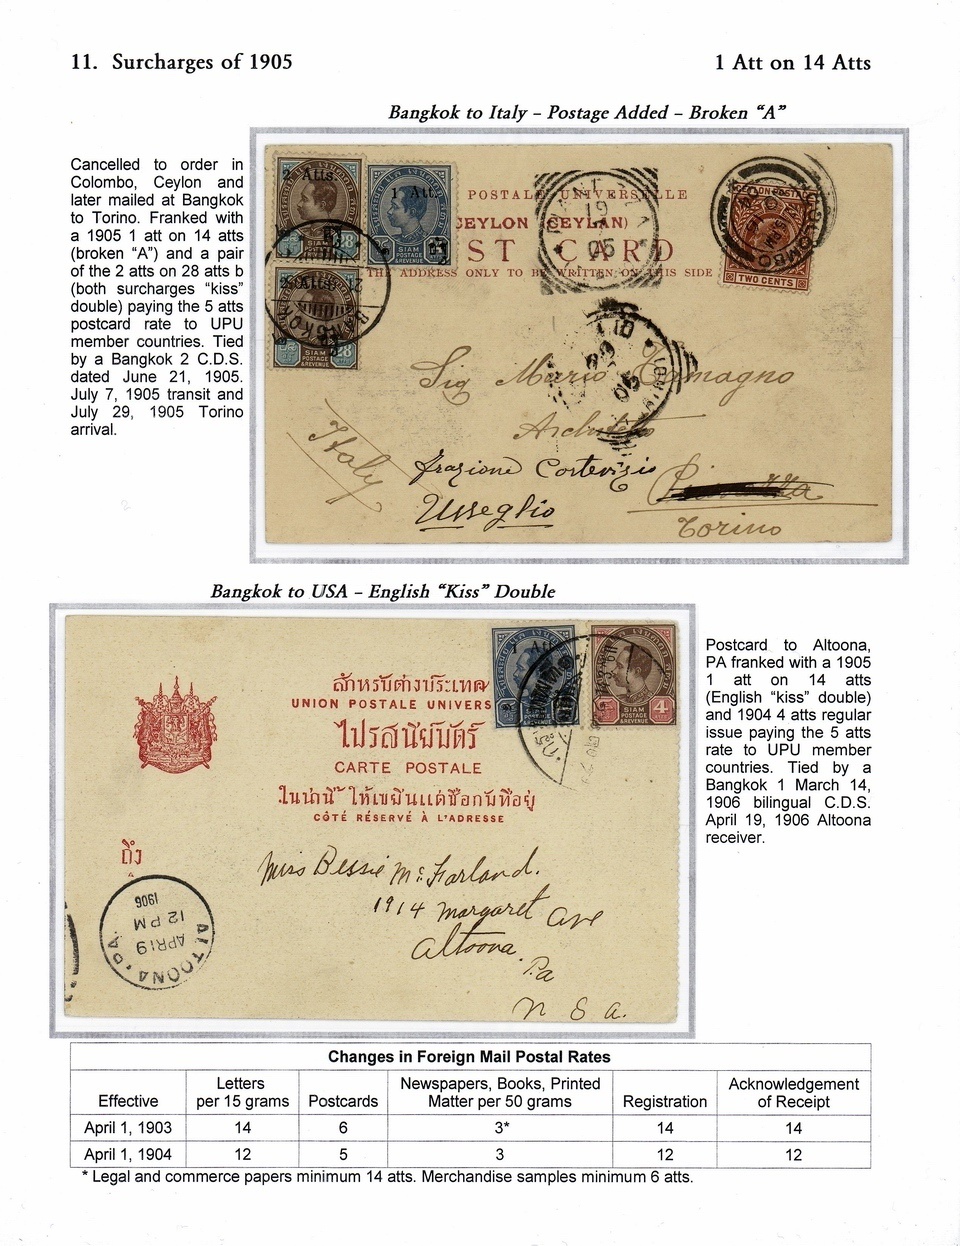 11. Surcharges of 1905
1 Att on 14 Atts
Bangkok to Italy – Postage Added – Broken “A”
Cancelled to order in
Colombo, Ceylon and
later mailed at Bangkok
to Torino. Franked with
a 1905 1 att on 14 atts
(broken “A”) and a pair
of the 2 atts on 28 atts b
(both surcharges “kiss”
double) paying the 5 atts
postcard rate to UPU
member countries. Tied
by a Bangkok 2 C.D.S.
dated June 21, 1905.
July 7, 1905 transit and
July 29, 1905 Torino
arrival.
2 Atts.
1 Att.
SIAM
POSTAGE
&REVENUE
28
SIAM
POSTAGE
&REVENUE
2 Atts.
SIAM
POSTAGE
&REVENUE
28
POSTALE UNIVERSELLE
CEYLON (CEYLAN)
ST CARD
THE ADDRESS ONLY TO BE WRITTEN ON THIS SIDE
CEYLON POSTAGE
TWO CENTS
COLOMBO
Sig Mario Tamagno
Architetto
frazione Cortevizio
Usseglio
Torino
Italy
Bangkok to USA – English “Kiss” Double
1 Att
SIAM
POSTAGE
&REVENUE
4
สำหรับต่างประเทศ
UNION POSTALE UNIVERS
ไปรสนียบัตร์
CARTE POSTALE
ในน่านี้ ให้เขียนแต่ชื่อกับที่อยู่
CÔTÉ RÉSERVÉ À L’ADRESSE
ถึง
Miss Bessie McFarland.
1914 Margaret Ave
Altoona.
Pa
U S a.
ALTOONA, PA.
APR 19
12 PM
1906
Postcard to Altoona,
PA franked with a 1905
1 att on 14 atts
(English “kiss” double)
and 1904 4 atts regular
issue paying the 5 atts
rate to UPU member
countries. Tied by a
Bangkok 1 March 14,
1906 bilingual C.D.S.
April 19, 1906 Altoona
receiver.
Changes in Foreign Mail Postal Rates
Effective | Letters per 15 grams | Postcards | Newspapers, Books, Printed Matter per 50 grams | Registration | Acknowledgement of Receipt
April 1, 1903 | 14 | 6 | 3* | 14 | 14
April 1, 1904 | 12 | 5 | 3 | 12 | 12
* Legal and commerce papers minimum 14 atts. Merchandise samples minimum 6 atts.